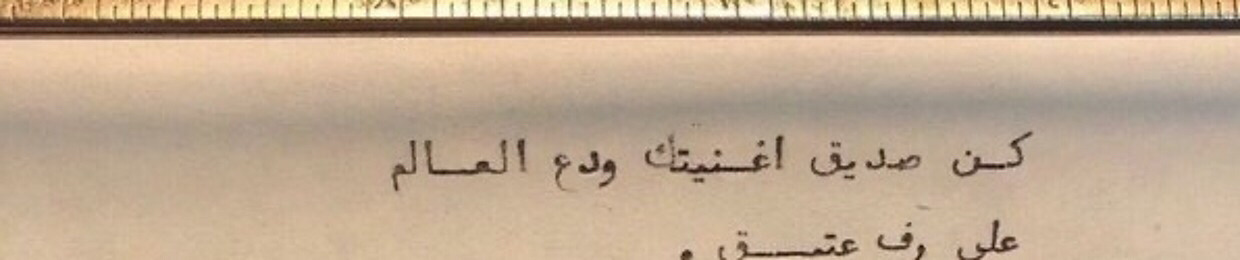 كن صديق اغنيتك ودع العالم
على رف عتيق .